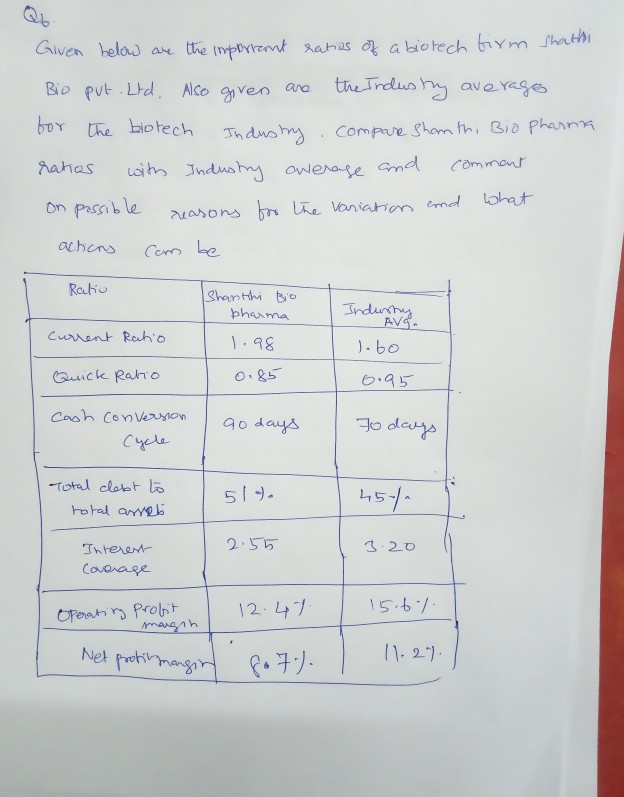 Q6.
Given below are the important ratios of a biotech firm Shathi
Bio pvt. Ltd. Also given are the Industry averages
for the biotech Industry. Compare Shanthi Bio Pharma
ratios with Industry average and comment
on possible reasons for the variation and what
actions can be
Ratio Shanthi Bio pharma Industry Avg.
Current Ratio 1.98 1.60
Quick Ratio 0.85 0.95
Cash Conversion Cycle 90 days 70 days
Total debt to total assets 51% 45%
Interest Coverage 2.55 3.20
Operating Profit margin 12.4% 15.6%
Net profit margin 8.7% 11.2%